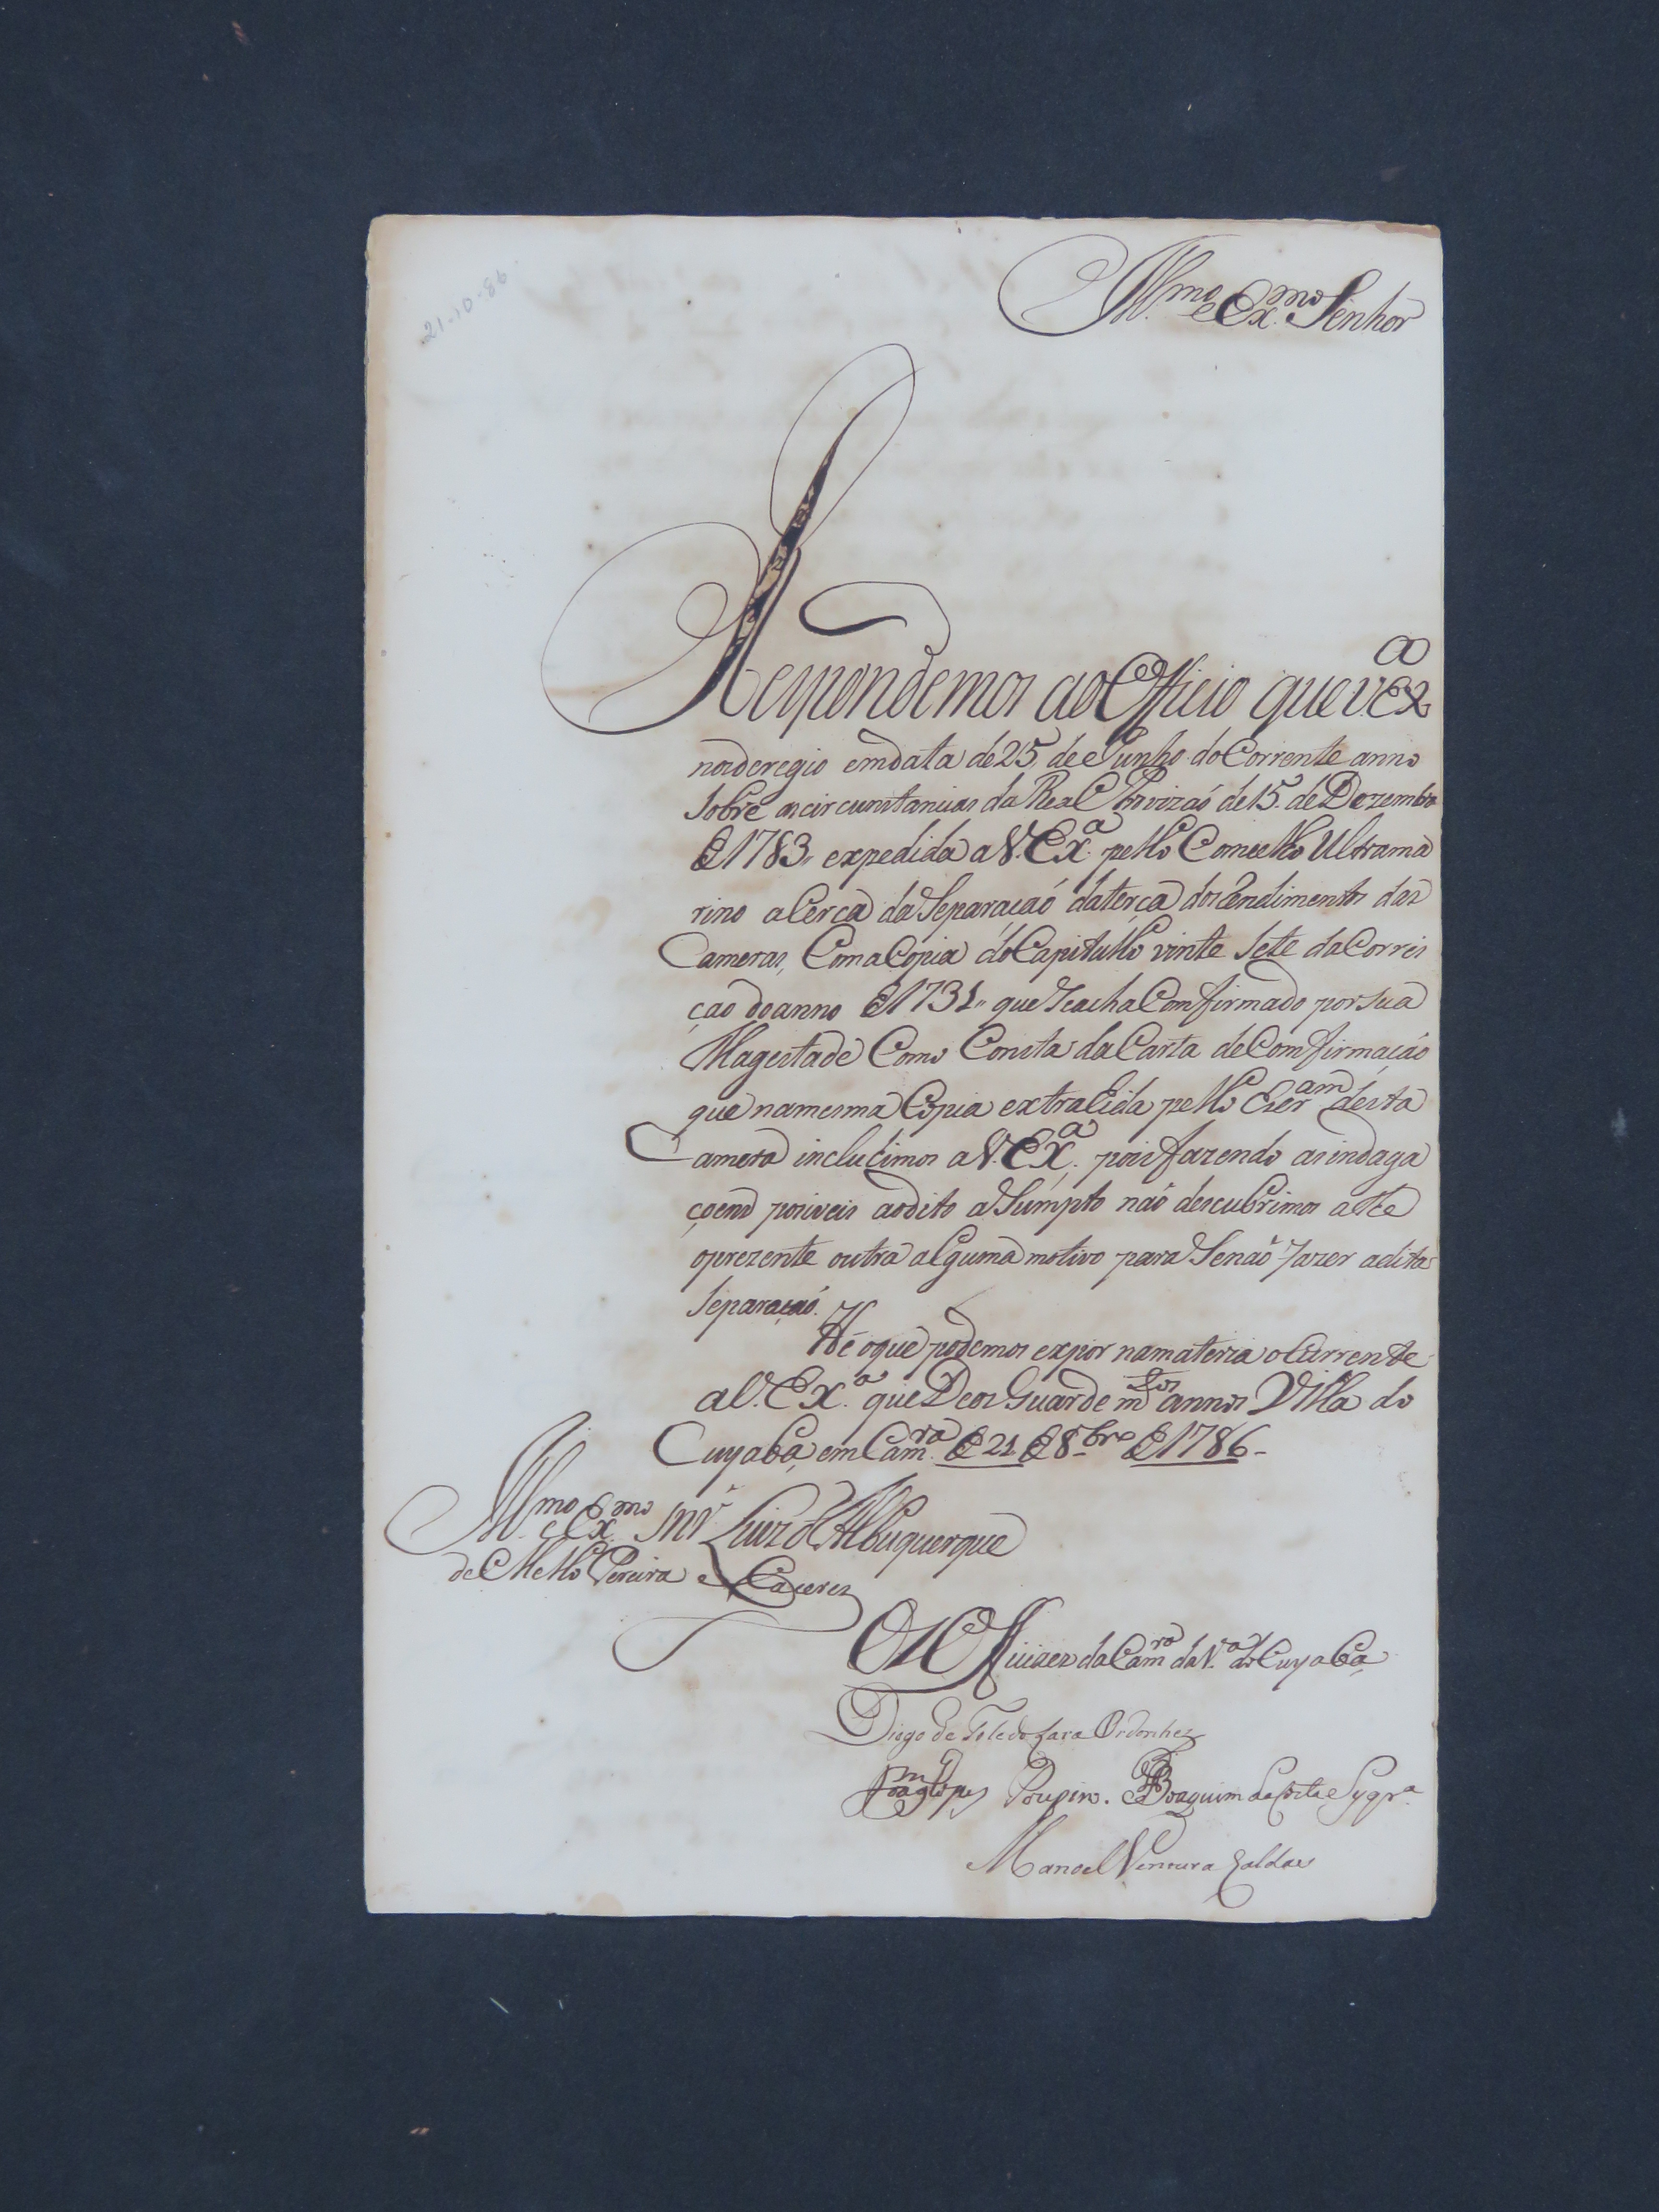 21-10-86
Ill.mo e Ex.mo Senhor
Respondemos ao Officio que V. Ex.a
nos deregio em data de 25 de Junho do Corrente anno
Sobre as circunstancias da Real Provizaõ de 15. de Dezembro
de 1783,, expedida a V. Ex.a pello Concelho Ultrama
rino aCerca da Separaçaõ da terça dos Rendimentos das
Cameras, Com a Copia do Capitullo vinte Sete da Correi
çaõ do anno de 1731,, que Se acha Comfirmado por Sua
Magestade Como Consta da Carta de Comfirmaçaõ
que na mesma Copia extrahida pello Escr.am desta
Camera incluhimos a V. Ex.a; pois fazendo as indaga
çoens posiveis ao dito aSumpto naõ descubrimos athe
o prezente outra alguma motivo para Se naõ fazer a dita
Separaçaõ.
Hé o que podemos expor na materia ocurrente
a V. Ex.a que Deos Guarde m.tos annos Villa do
Cuyabá, em Cam.ra de 21 de 8.bro de 1786-
Ill.mo e Ex.mo Snr Luiz d'Albuquerque
de Mello Pereira e Caceres
Os Officiaes da Cam.ra da V.a do Cuyabá
Diogo de Toledo Lara Ordonhez
Joaq.m Lopes Poupino. Joaquim da Costa Syqr.a
Manoel Ventura Caldas